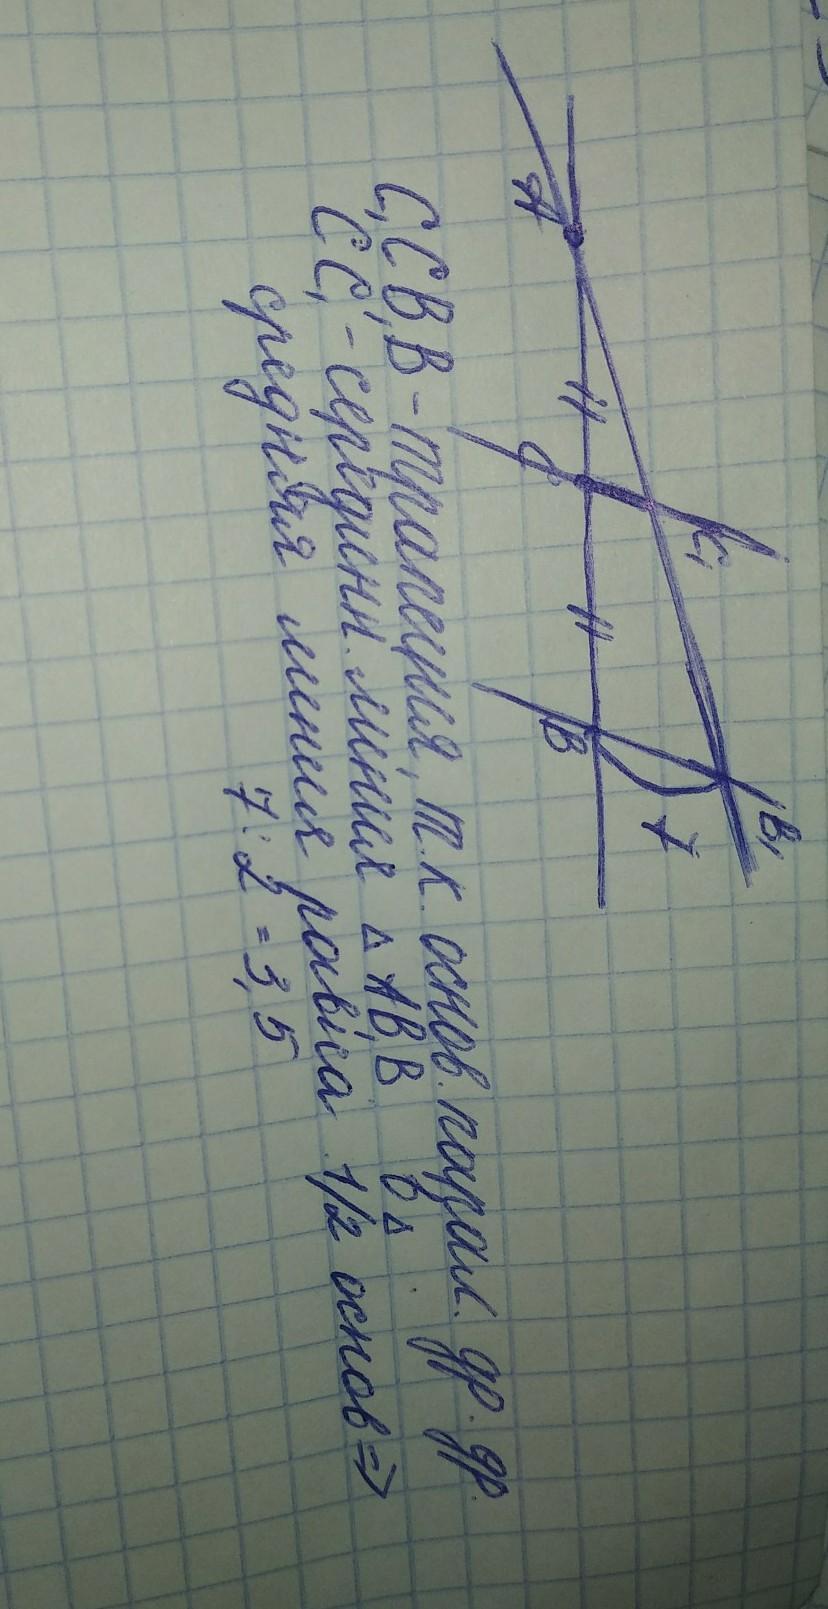 A
C
C₁
B
B₁
7
C₁CB₁B - трапеция, т.к. основ. парал. др. др.
CC₁ - серединн. линия △ AB₁B в △
средняя линия равна 1/2 основ =>
7 : 2 = 3,5